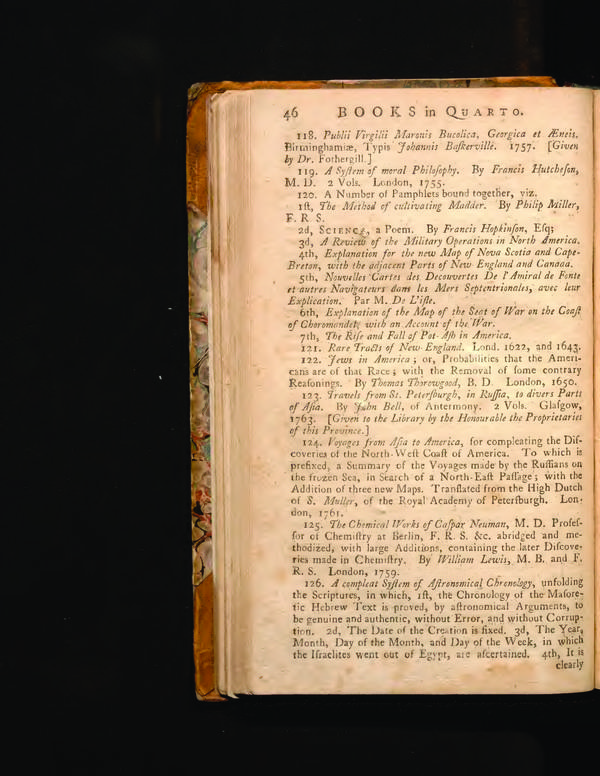 46 BOOKS in QUARTO.
118. Publii Virgilii Maronis Bucolica, Georgica et Æneis.
Birminghamiæ, Typis Johannis Baſkerville. 1757. [Given
by Dr. Fothergill.]
119. A Syſtem of moral Philoſophy. By Francis Hutcheſon,
M. D. 2 Vols. London, 1755.
120. A Number of Pamphlets bound together, viz.
1ſt, The Method of cultivating Madder. By Philip Miller,
F. R. S.
2d, SCIENCE, a Poem. By Francis Hopkinſon, Eſq;
3d, A Review of the Military Operations in North America.
4th, Explanation for the new Map of Nova Scotia and Cape-
Breton, with the adjacent Parts of New England and Canada.
5th, Nouvelles Cartes des Decouvertes De l'Amiral de Fonte
et autres Navigateurs dans les Mers Septentrionales, avec leur
Explication. Par M. De L'iſle.
6th, Explanation of the Map of the Seat of War on the Coaſt
of Choromandel, with an Account of the War.
7th, The Riſe and Fall of Pot-Aſh in America.
121. Rare Tracts of New-England. Lond. 1622, and 1643.
122. Jews in America; or, Probabilities that the Ameri-
cans are of that Race; with the Removal of ſome contrary
Reaſonings. By Thomas Thorowgood, B. D. London, 1650.
123. Travels from St. Peterſburgh, in Ruſſia, to divers Parts
of Aſia. By John Bell, of Antermony. 2 Vols. Glaſgow,
1763. [Given to the Library by the Honourable the Proprietaries
of this Province.]
124. Voyages from Aſia to America, for compleating the Diſ-
coveries of the North-Weſt Coaſt of America. To which is
prefixed, a Summary of the Voyages made by the Ruſſians on
the frozen Sea, in Search of a North-Eaſt Paſſage; with the
Addition of three new Maps. Tranſlated from the High Dutch
of S. Muller, of the Royal Academy of Peterſburgh. Lon-
don, 1761.
125. The Chemical Works of Caſpar Neuman, M. D. Profeſ-
ſor of Chemiſtry at Berlin, F. R. S. &c. abridged and me-
thodized, with large Additions, containing the later Diſcove-
ries made in Chemiſtry. By William Lewis, M. B. and F.
R. S. London, 1759.
126. A compleat Syſtem of Aſtronomical Chronology, unfolding
the Scriptures, in which, 1ſt, the Chronology of the Maſore-
tic Hebrew Text is proved, by aſtronomical Arguments, to
be genuine and authentic, without Error, and without Corrup-
tion. 2d, The Date of the Creation is fixed. 3d, The Year,
Month, Day of the Month, and Day of the Week, in which
the Iſraelites went out of Egypt, are aſcertained. 4th, It is
clearly